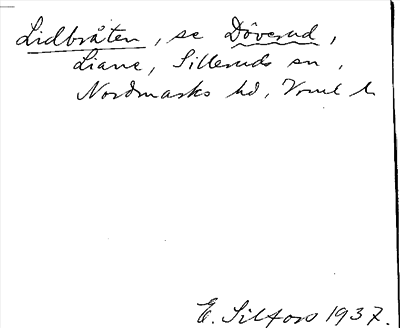 Lidbråten, se Döverud,
Liane, Silleruds sn,
Nordmarks hd, Vrml l.
E. Silfors 1937.